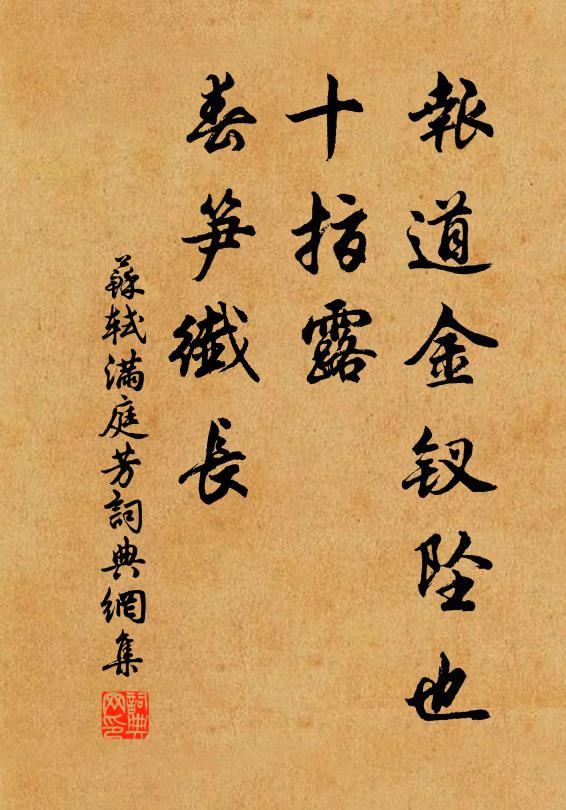 報道金钗坠也
十指露
春笋纖長
蘇軾滿庭芳詞典網集
詞典
网印